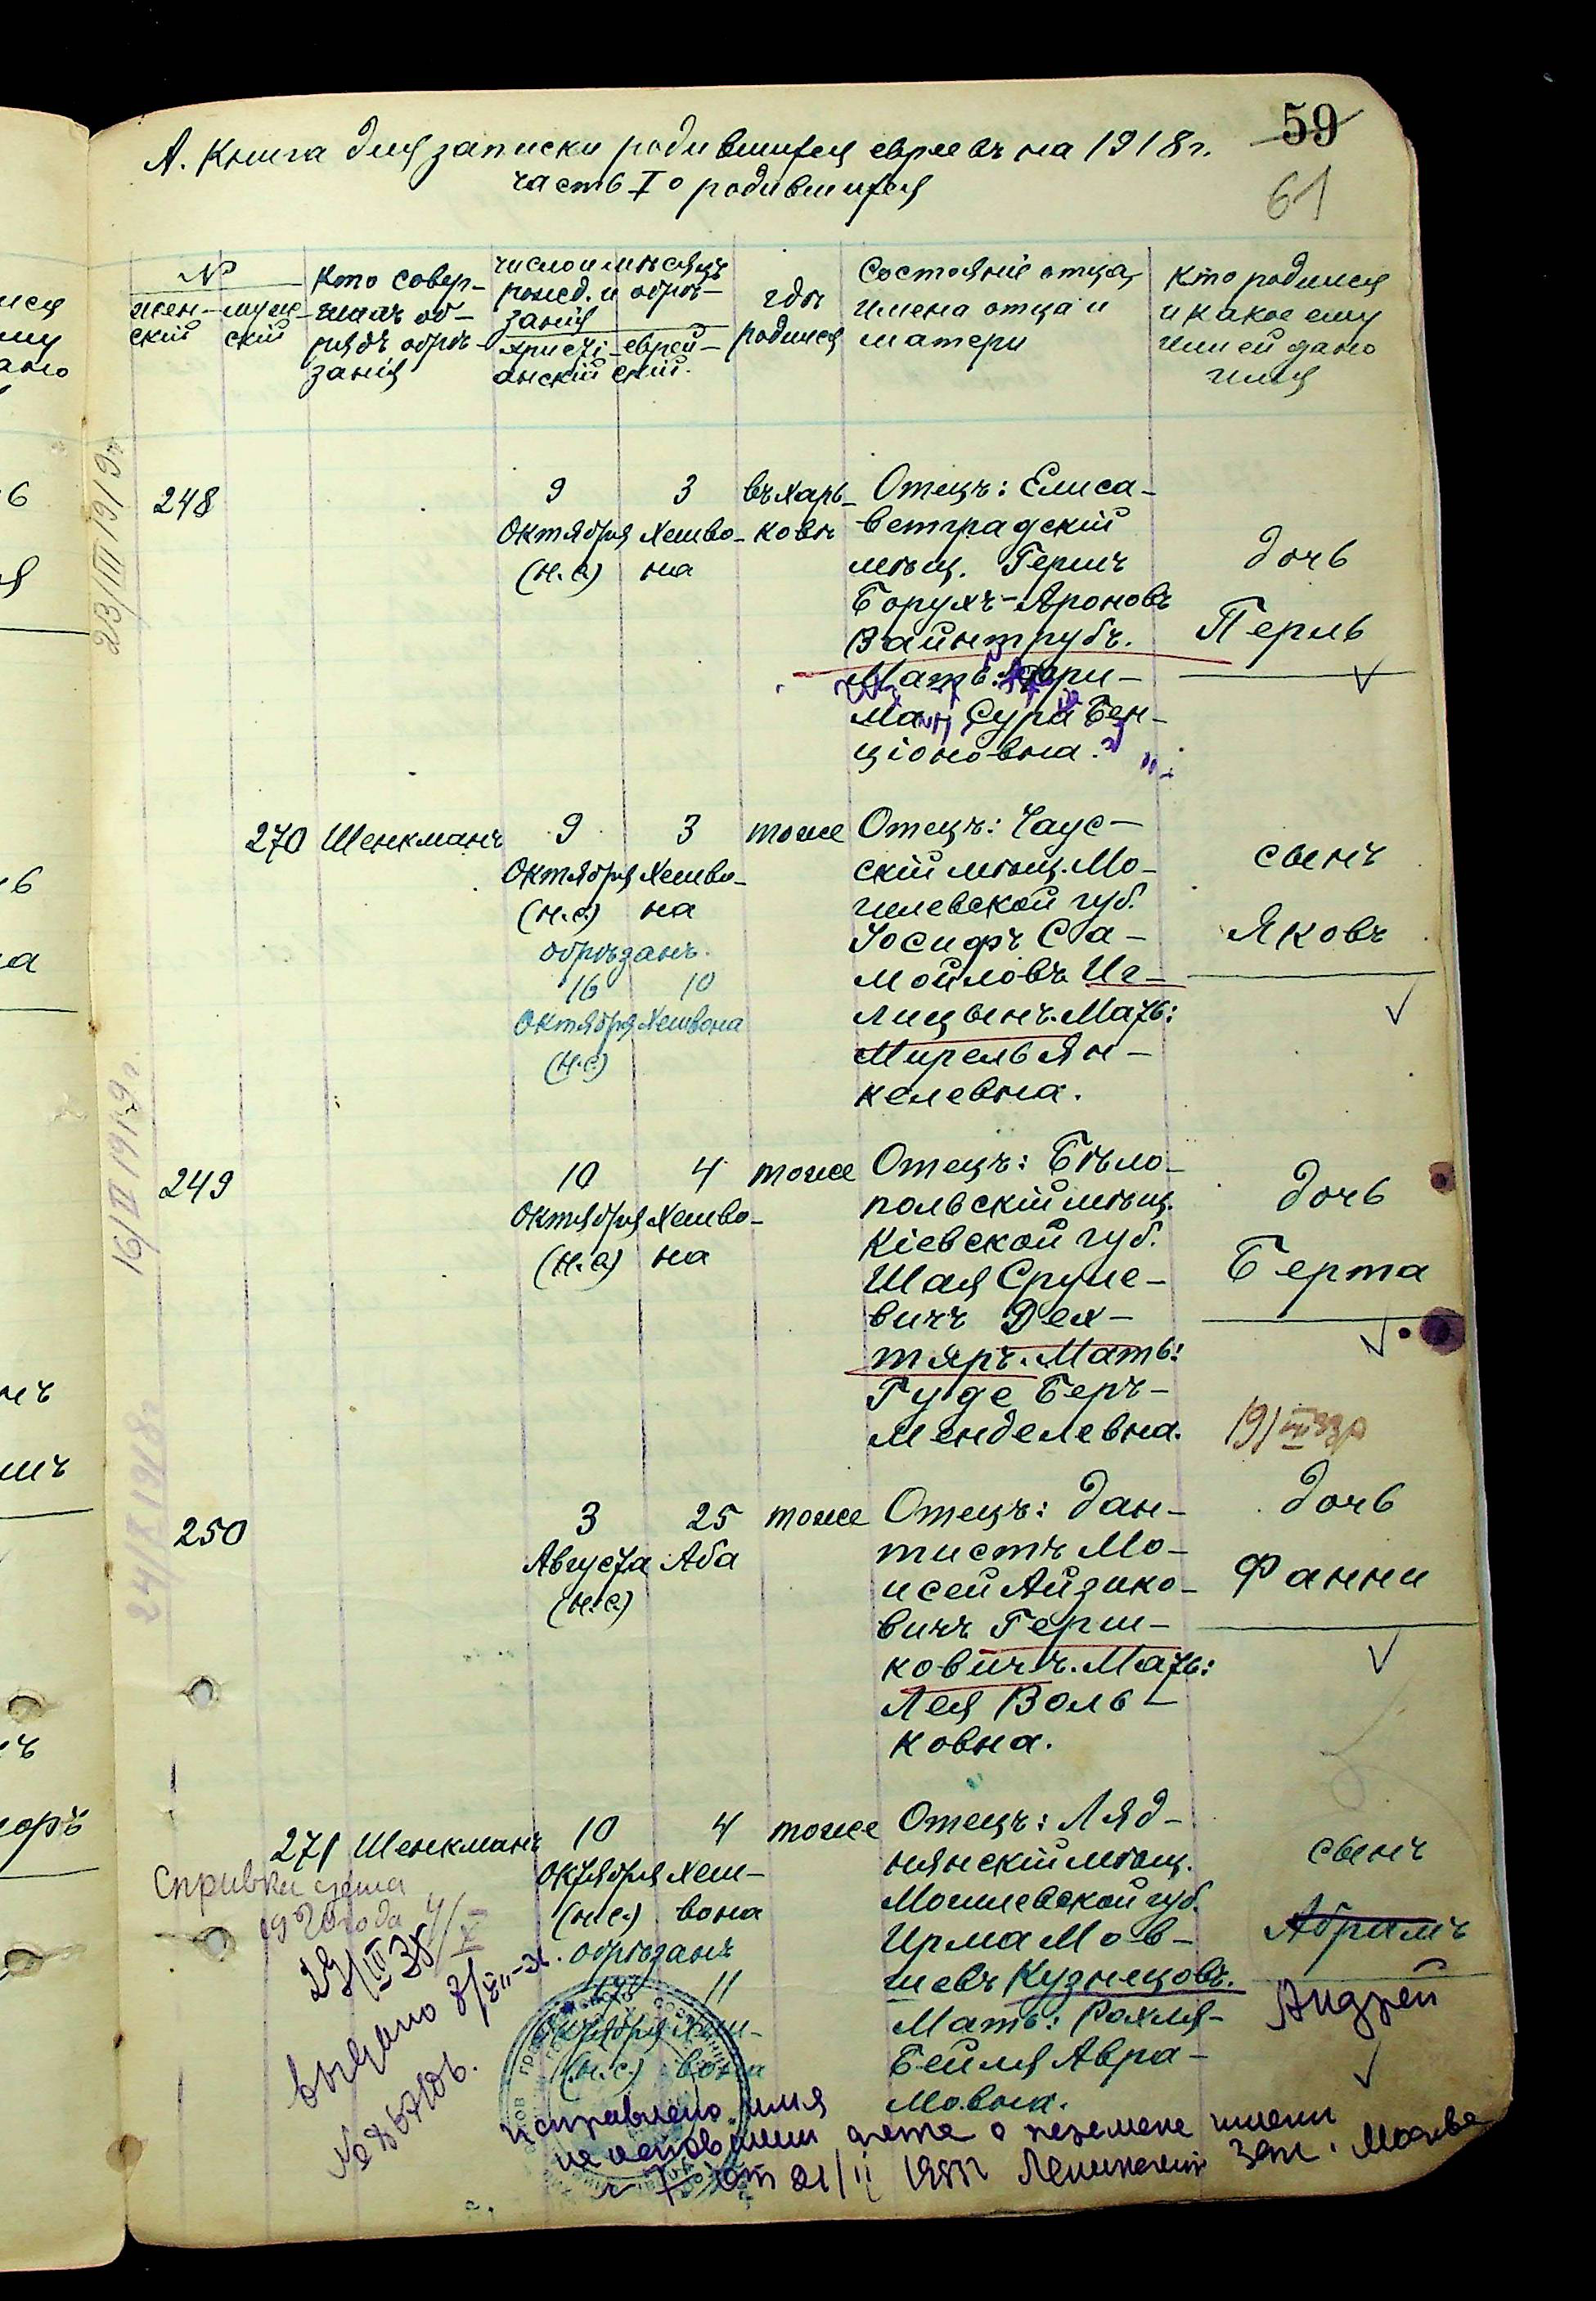 59
А. Книга для записки родившихся евреевъ на 1918 г.
часть I о родившихся
61
№
жен-
скій
муж-
скій
Кто совер-
шилъ об-
рядъ обрѣ-
занія
число и мѣсяцъ
рожд. и обрѣ-
занія
Христі-
анскій
еврей-
скій.
гдѣ
родился
Состояніе отца,
имена отца и
матери
Кто родился
и какое ему
или ей дано
имя
23/III 1919 г.
248
9
Октября
(н.с.)
3
Хешво-
на
въ Харь-
ковѣ
Отецъ: Елиса-
ветградскій
мѣщ. Гершъ
Борухъ-Ароновъ
Вайнтрубъ.
Мать:
Сура Бен-
ціоновна.
дочь
Перль
270
Шенкманъ
9
Октября
(н.с.)
3
Хешво-
на
обрѣзанъ.
16
Октября
(н.с.)
10
Хешвона
тоже
Отецъ: Чаус-
скій мѣщ. Мо-
гилевской губ.
Іосифъ Са-
мойловъ Иг-
лицынъ. Мать:
Мирель Ян-
келевна.
сынъ
Яковъ
249
10
Октября
(н.с.)
4
Хешво-
на
тоже
Отецъ: Бѣло-
польскій мѣщ.
Кіевской губ.
Шая Сруле-
вичъ Дех-
тяръ. Мать:
Гуде Беръ-
менделевна.
дочь
Берта
24/X 1918 г.
250
3
Августа
(н.с.)
25
Аба
тоже
Отецъ: дан-
тистъ Мо-
исей Айзико-
вичъ Герш-
ковичъ. Мать:
Лея Воль-
ковна.
дочь
Фанни
271
Шенкманъ
10
Октября
(н.с.)
4
Хеш-
вона
обрѣзанъ
17
Октября
(н.с.)
11
Хеш-
вона
тоже
Отецъ: Ляд-
нянскій мѣщ.
Могилевской губ.
Ирма Мов-
шевъ Кузнецовъ.
Мать: Рохля-
Бейля Авра-
мовна.
сынъ
Абрамъ
Андрей
Справка
1920 года
выдано
исправлено имя
на основании акта о перемене имени
№ 7 от 21/II
Москва